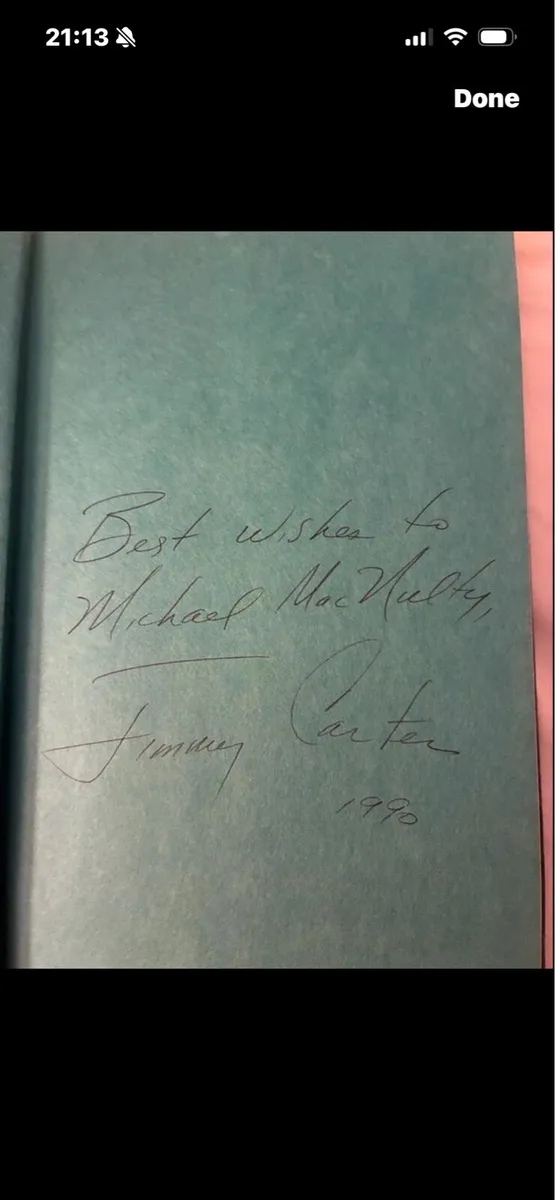 21:13
Done
Best wishes to
Michael MacNulty,
Jimmy Carter
1990